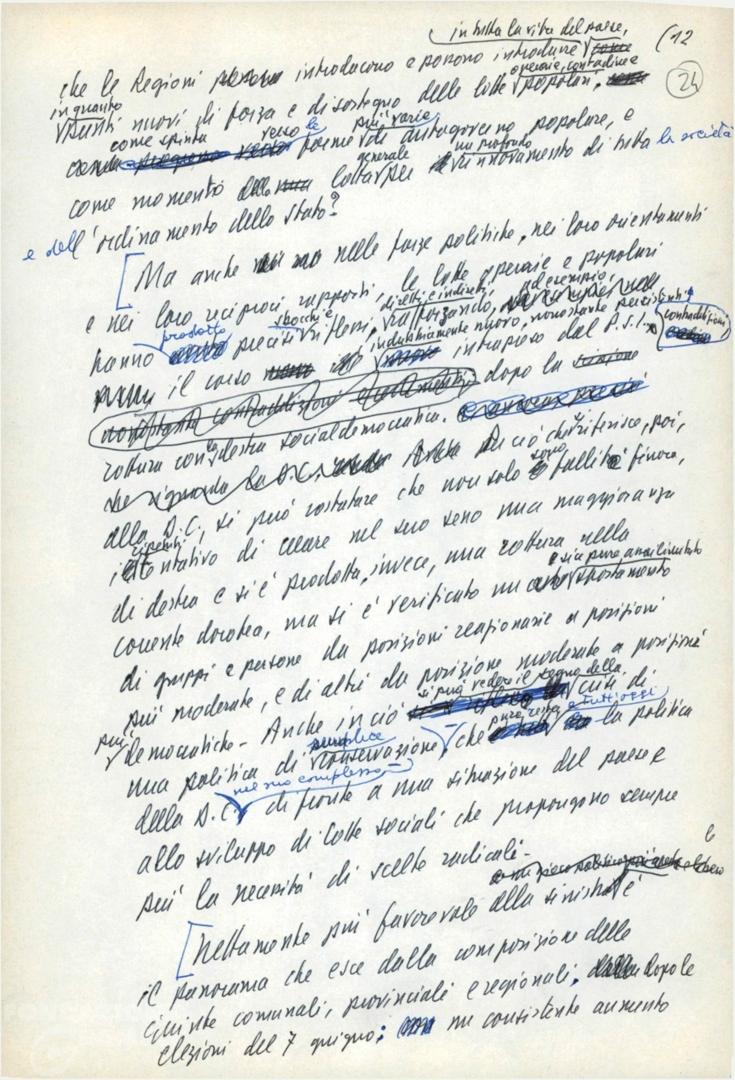 in tutta la vita del paese,
(12
24
che le Regioni introducono e possono introdurre
operaie, contadine e
in quanto
punti nuovi di forza e di sostegno delle lotte popolari,
come spinta verso le più varie
forme di autogoverno popolare, e
generale un profondo
come momento lotta per rinnovamento di tutta la società
e dell'ordinamento dello Stato?
[Ma anche nelle forze politiche, nei loro orientamenti
e nei loro reciproci rapporti, le lotte operaie e popolari
diretti e indiretti, ad esempio,
prodotto sbocchi e
hanno precisi riflessi, rafforzando,
indubbiamente nuovo, nonostante persistenti
contraddizioni
il corso intrapreso dal P.S.I.
nonostante contraddizioni
dopo la scissione
rottura con la destra socialdemocratica.
ciò che si riferisce, poi,
sono
alla D.C., si può costatare che non solo falliti finora,
ripetuti
i tentativo di creare nel suo seno una maggioranza
di destra e si è prodotta, invece, una rottura nella
e sia pure assai limitato
corrente dorotea, ma si è verificato uno spostamento
di gruppi e persone da posizioni reazionarie a posizioni
più moderate, e di altri da posizione moderate a posizioni
si può vedere il segno della
più democratiche - Anche in ciò crisi di
semplice pure resta a tutt'oggi
una politica di conservazione, che la politica
nel suo complesso -
della D.C. di fronte a una situazione del paese e
allo sviluppo di lotte sociali che propongono sempre
più la necessità di scelte radicali -
[Nettamente più favorevole alla sinistra è
il panorama che esce dalla composizione delle
giunte comunali, provinciali e regionali, dopo le
elezioni del 7 giugno: un consistente aumento